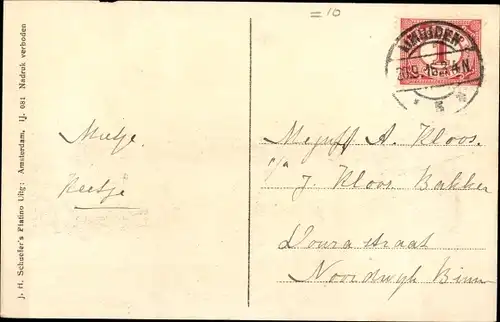 =10
IJMUIDEN
J. H. Schaefer's Platino Litg: Amsterdam. IJ. 081 Nadruk verboden
Mietje
Keetje
Mejuff A. Kloos.
p/a
J. Kloos Bakker
Douza straat
Noordwijk Binn